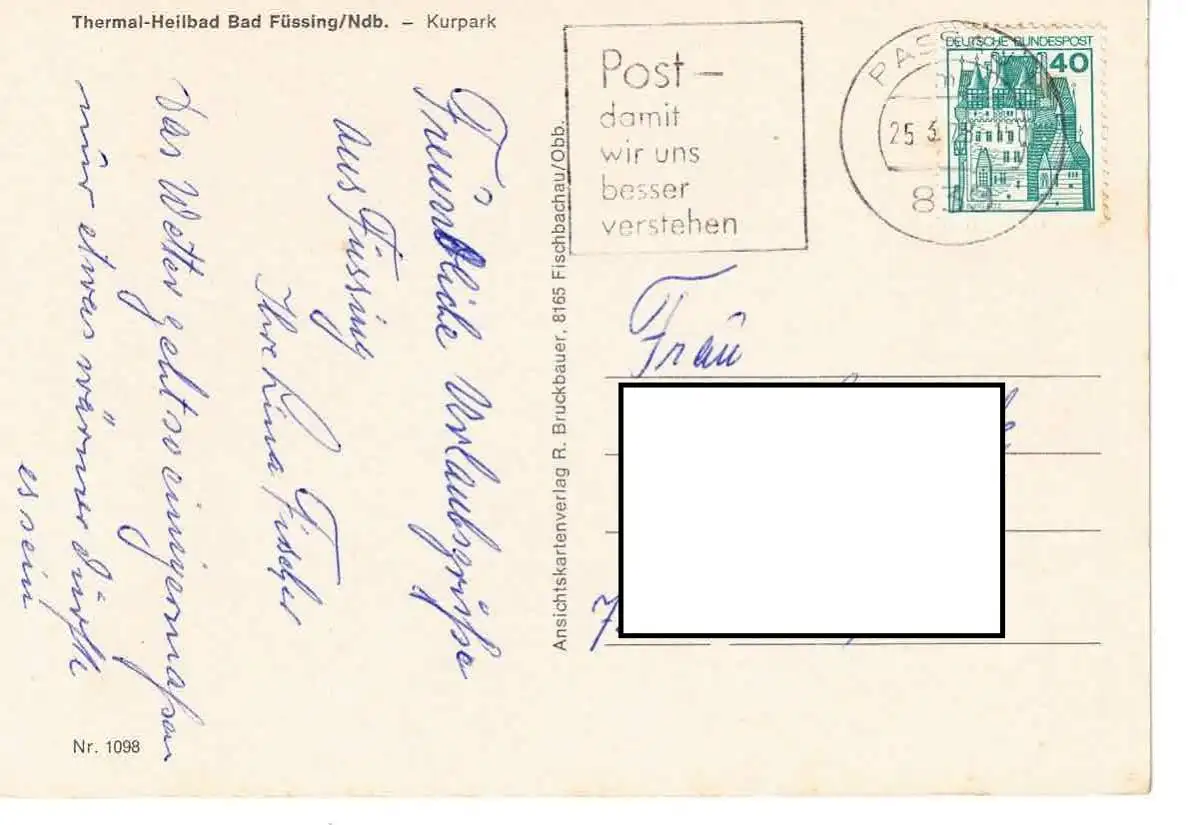 Thermal-Heilbad Bad Füssing/Ndb. – Kurpark
Freundliche Urlaubsgrüße
aus Füssing
Ihre Lina Fischer
Das Wetter geht so einigermaßen
nur etwas wärmer dürfte
es sein
Nr. 1098
Ansichtskartenverlag R. Bruckbauer, 8165 Fischbachau/Obb.
Post –
damit
wir uns
besser
verstehen
25.3.
DEUTSCHE BUNDESPOST
40
Frau
7